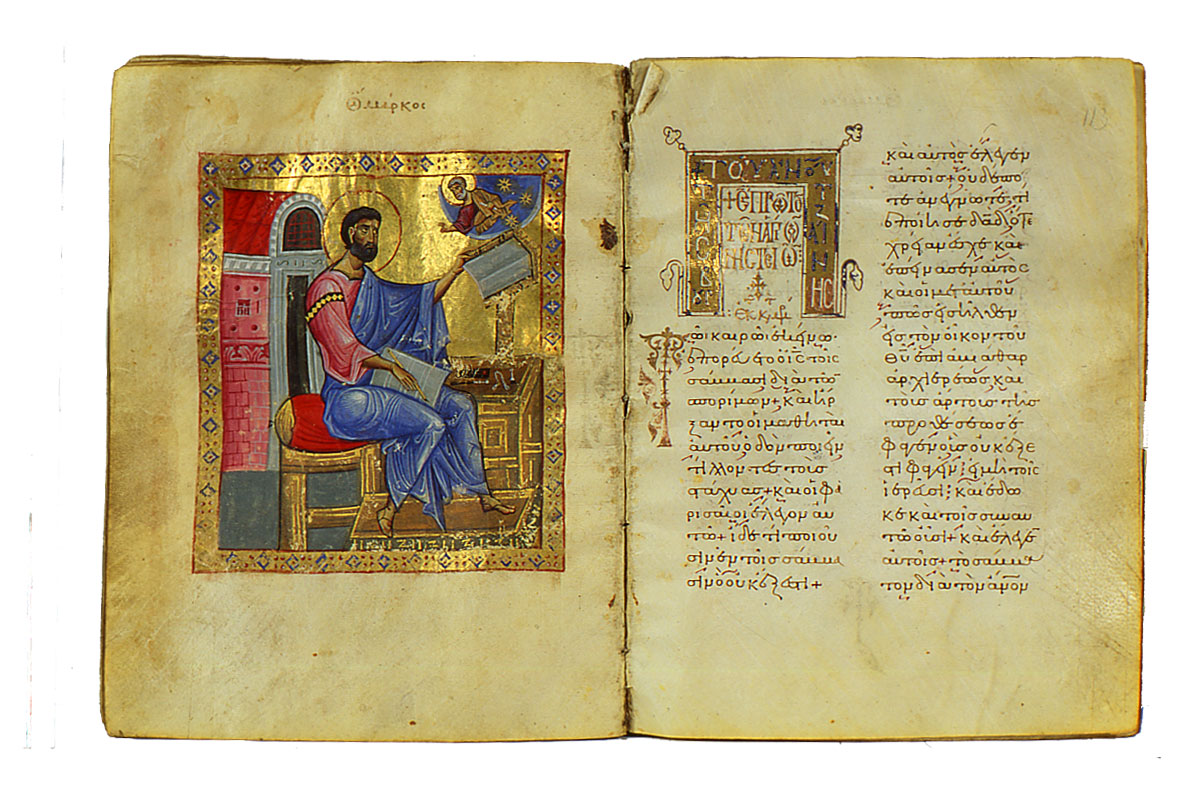 Ὁ Μάρκος
113
+ΕΠΡΩΤΟ
ΤΩΝ ΑΓΙΩ
ΝΗΣΤΕΙΩ
Τῶι καιρῶι ἐκείνω·
ἐπορεύετο ὁ ἰς τοῖς
σάββασι διὰ τῶν
σπορίμων+ καὶ ἤρ
ξαντο οἱ μαθηταὶ
αὐτοῦ ὁδὸν ποιεῖν
τίλλοντες τοὺς
στάχυας+ καὶ οἱ φα
ρισαῖοι ἔλεγον αὐ
τῶ+ ἴδε τί ποιοῦ
σιν ἐν τοῖς σάββα
σιν ὃ οὐκ ἔξεστι+
καὶ αὐτὸς ἔλεγεν
αὐτοῖς+ οὐδέπο
τε ἀνέγνωτε, τί
ἐποίησε δαδ ὅτε
χρείαν ἔσχε καὶ
ἐπείνασεν αὐτὸς
καὶ οἱ μετ αὐτοῦ
πῶς εἰσῆλθεν
εἰς τὸν οἶκον τοῦ
θυ ἐπὶ ἀβιάθαρ
ἀρχιερέως καὶ
τοὺς ἄρτους τῆς
προθέσεως ἔ
φαγεν οἷς οὐκ ἔξε
στι φαγεῖν εἰ μὴ τοῖς
ἱερεῦσι; καὶ ἔδω
κε καὶ τοῖς σὺν αὐ
τῶ οὖσι+ καὶ ἔλεγεν
αὐτοῖς+ τὸ σάββα
τον διὰ τὸν ἄνον